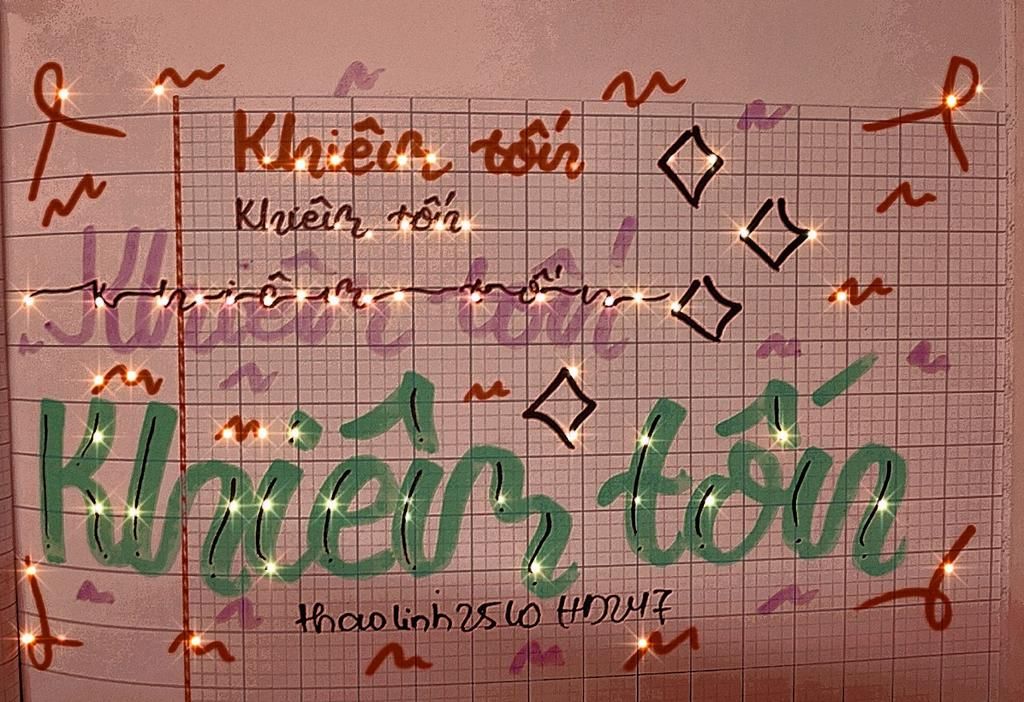 Khiêm tốn
Khiêm tốn
Khiêm tốn
Khiêm tốn
Khiêm tốn
thaolinh2510 HD247